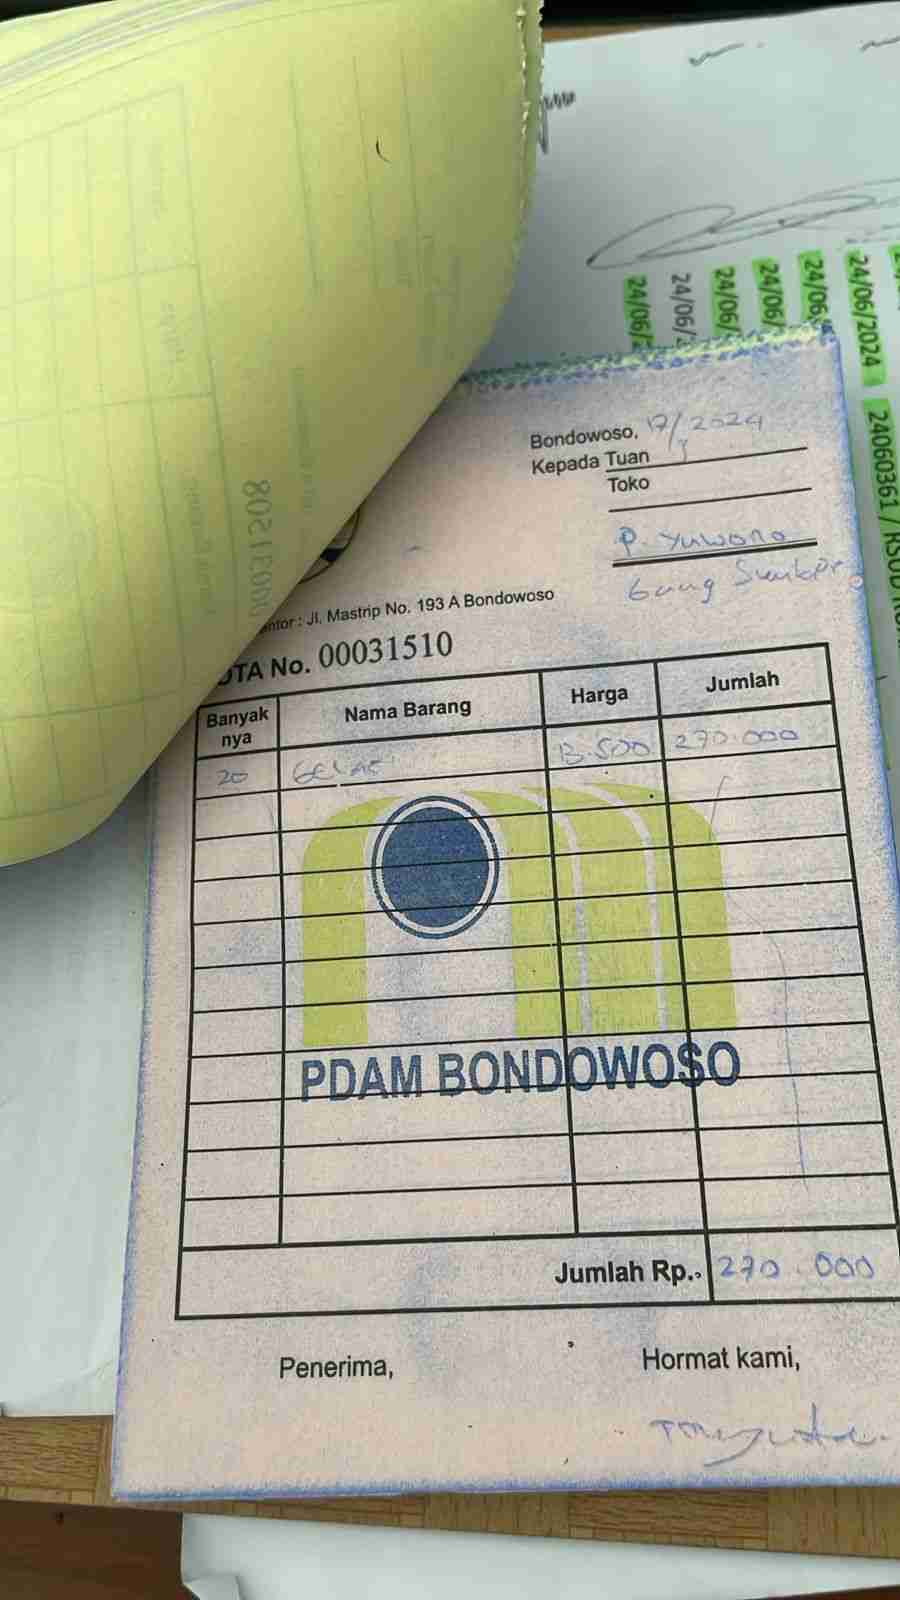 24/06/
24/06/
24/06/
24/06/
24/06
24/06/2024
24060361 / RSUD
00031508
Bondowoso, 17/7 2024
Kepada Tuan
Toko
P. Yuwono
Gang
ntor : Jl. Mastrip No. 193 A Bondowoso
OTA No. 00031510
Banyak nya Nama Barang Harga Jumlah
20 13.500 270.000
PDAM BONDOWOSO
Jumlah Rp. 270.000
Penerima, Hormat kami,